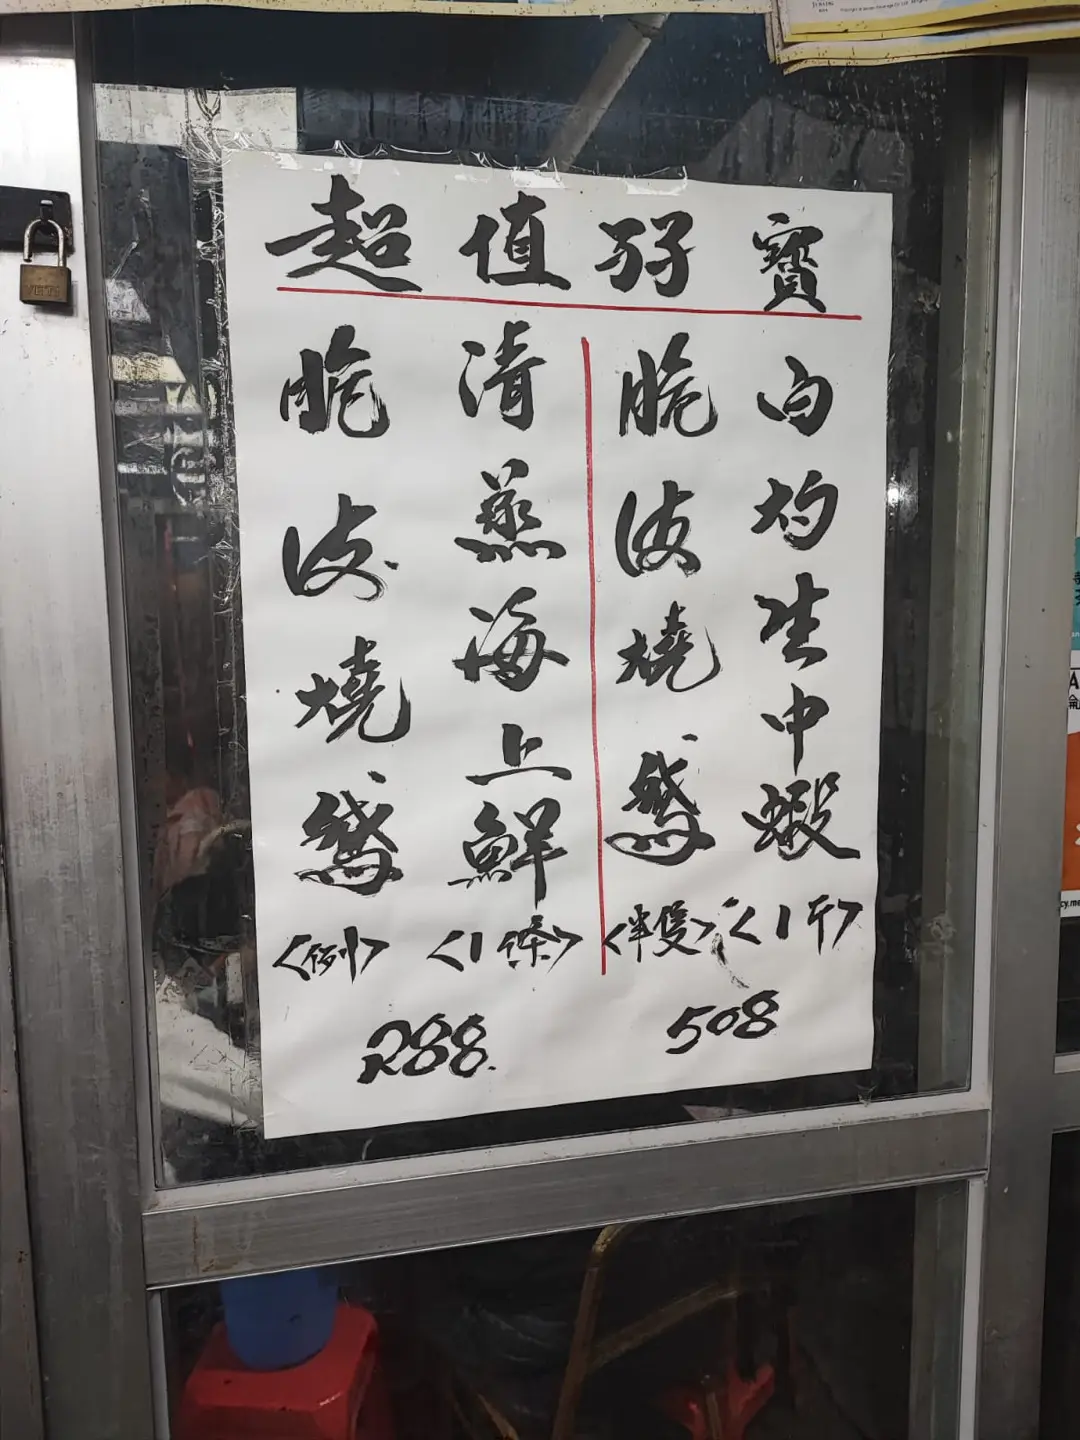 超值孖寶
脆皮燒鵝<例>
清蒸海上鮮<1條>
288.
脆皮燒鵝<半隻>
白灼生中蝦<1斤>
508